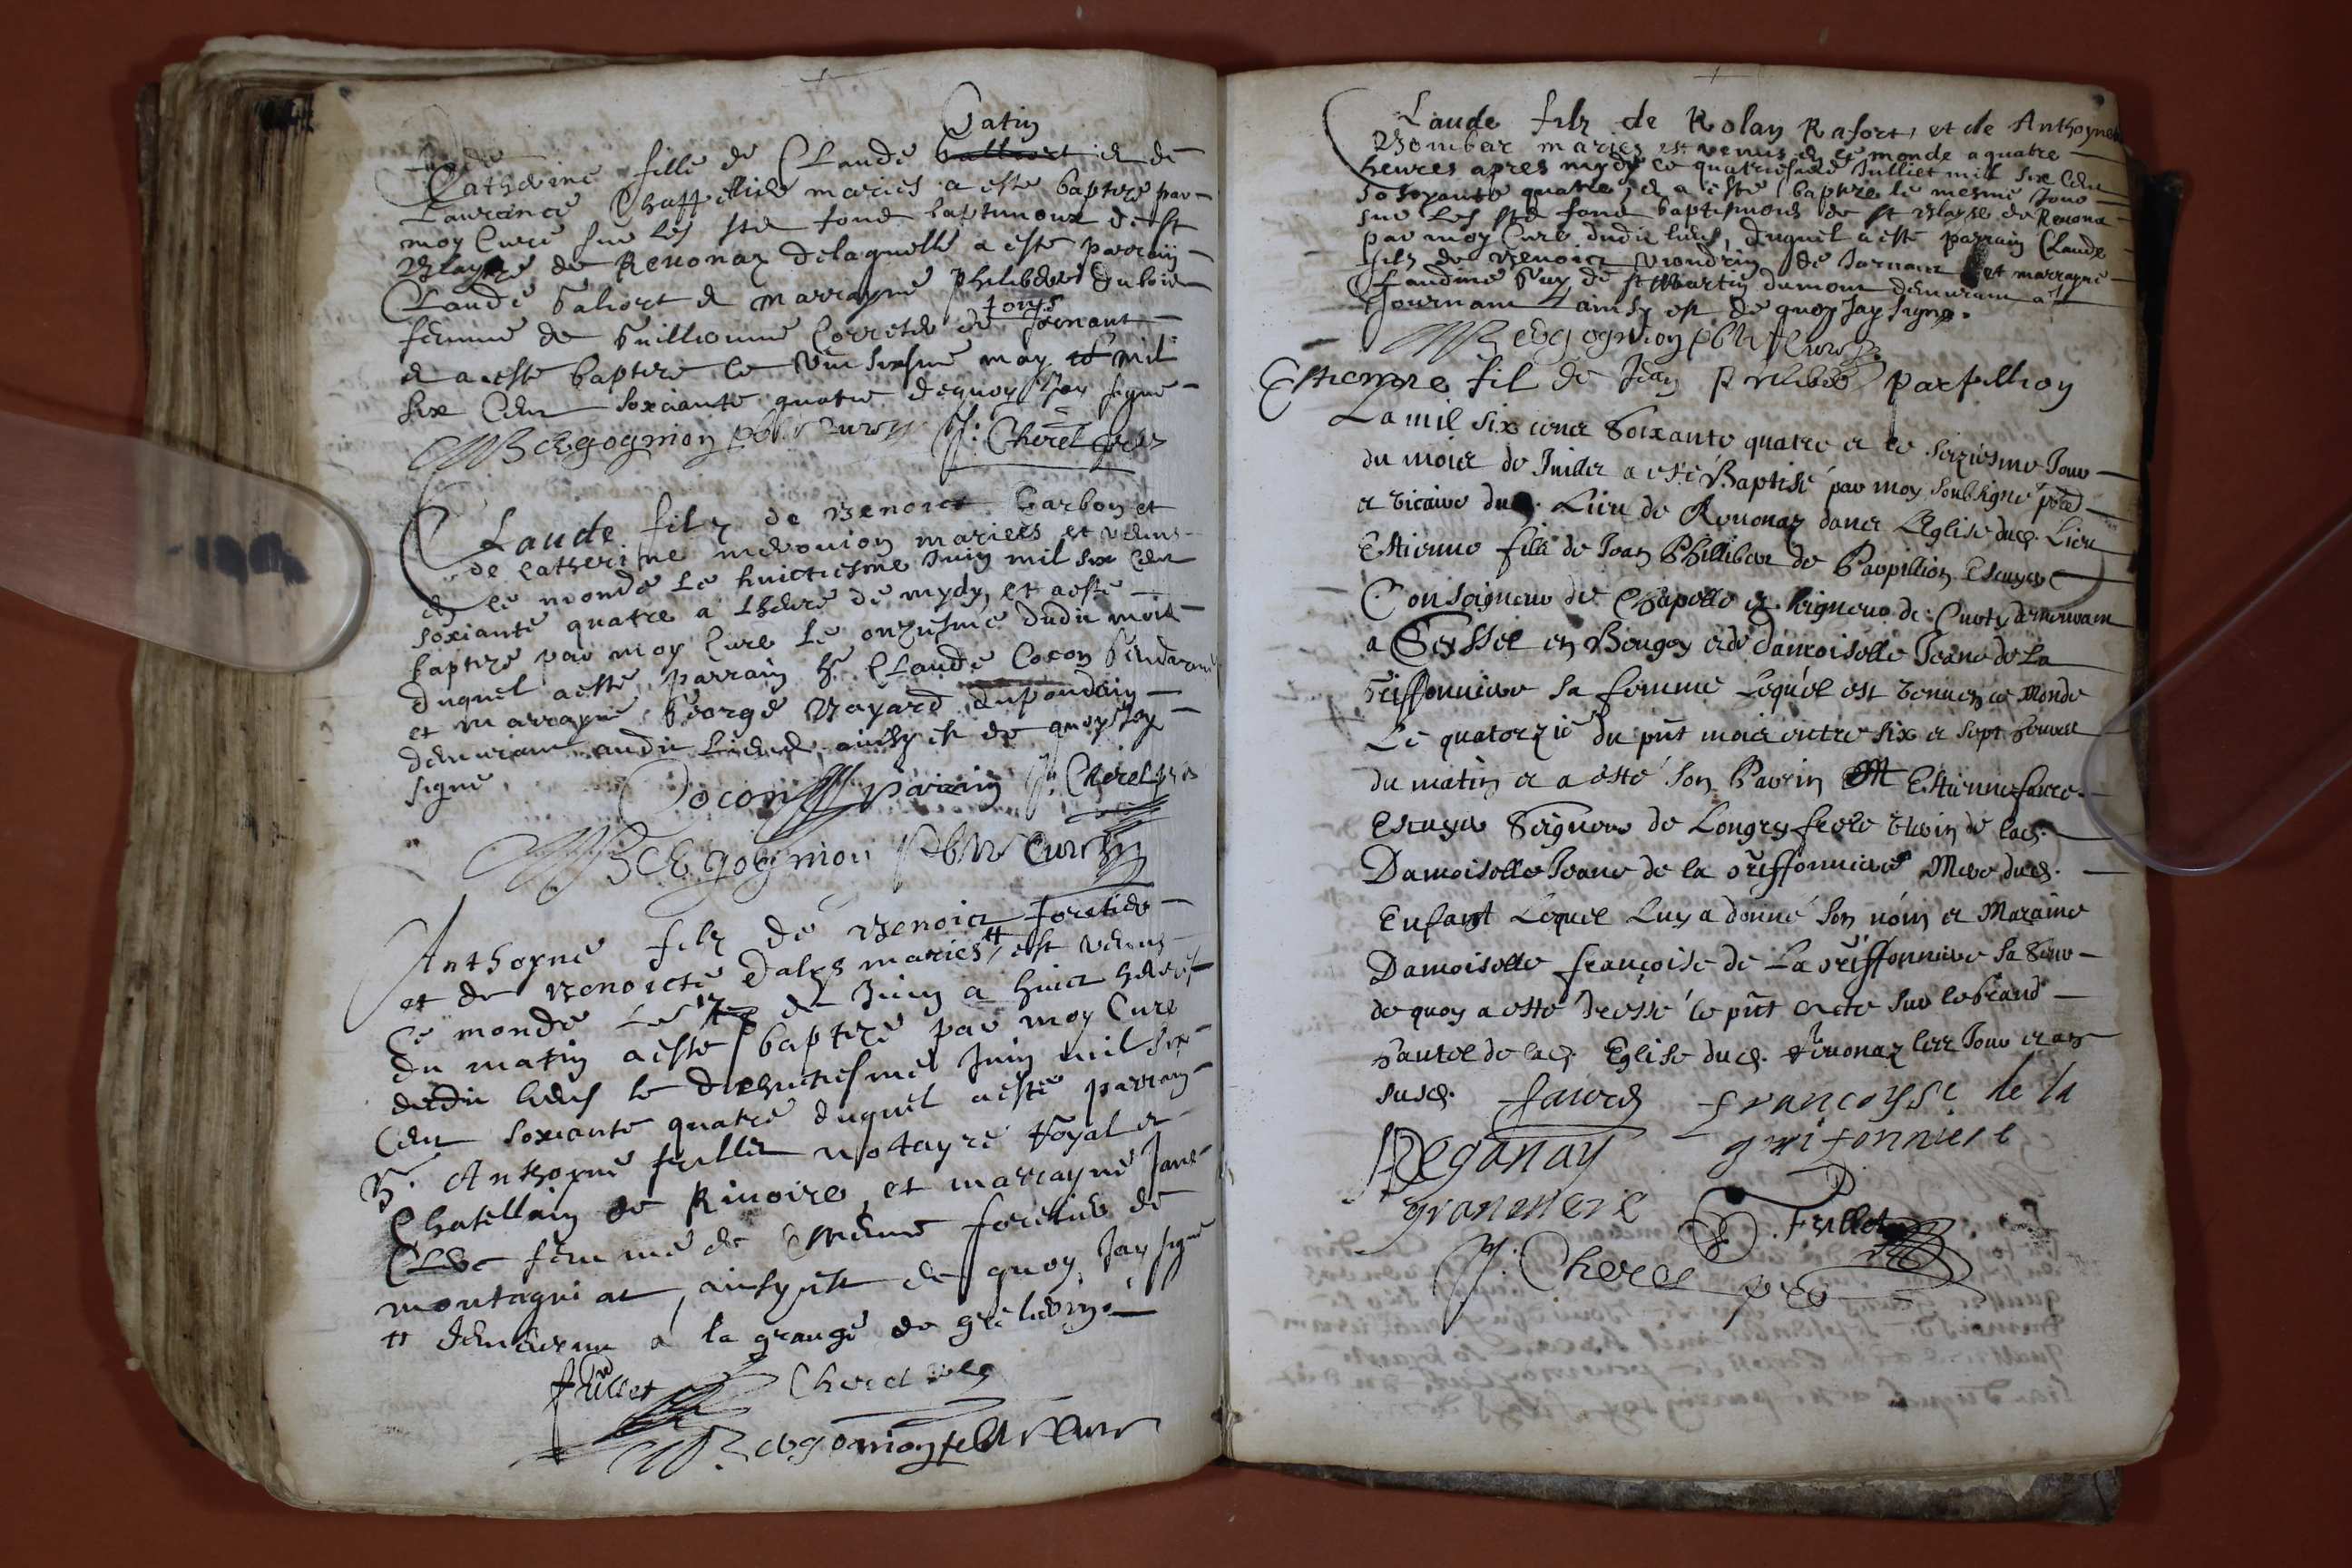 Catin
Catherine fille de Claude et de
Laurence mariés a esté baptizé par
moy Curé sur les fond baptismaux de st
Blayse de Reuonaz delaquelle a esté parrain
Claude et marrayne philiberte dubois
femme de Guilliaume de
et a esté baptizé le may mil
six Cent soxciante quatre dequoy Jay signe
Bergognion pbre Cure J. Cherel
Claude filz de Benoict Carbon et
de catherine mariees est venus
en ce monde le huictiesme Juin mil six Cent
soxiante quatre a lheure de mydy, et a esté
baptizé par moy Cure le onziesme dudit mois
duquel a esté parrain Claude Cocon
et marrayne George Bayard
demeurant audit ainsy est de quoy Jay
signe
Cocon parrain J. Cherel
Bergognion pbre Cure
Anthoyne filz de Benoict foretier
et de Benoicte mariés tt est venus
ce monde Le 17 de Juin a huict heures
du matin a esté baptizé par moy Cure
dudit lieus le dixhuictiesme Juin mil six
Cent soxiante quatre duquel a esté parrain
Sr. Anthoyne fullet notayre Royal et
Chatellain de Riuoire, et marrayne Jane
femme de foretier de
montagniat, ainsy est de quoy Jay signe
tt demeurant a la grange de
fullet Cherel
Bergognion pbre Cure
Claude filz de Rolan Rafort, et de Anthoynette
mariés est venus en ce monde a quatre
heures apres mydy le quatriesme Julliet mil six Cent
soxsoyante quatre, et a esté baptize le mesme Jour
sur Les fond baptismaux de st Blayse de Reuona
par moy Cure dudit lieus, duquel a esté parrain Claude
filz de Benoict de Jarnant et marrayne
Claudine de st Martin dumont demeurant a
Journant ainsy est de quoy Jay signe.
Bergognion pbre Cure
Estienne fil de Jean Philibe parpillion
La mil six cens Soixante quatre et le seiziesme Jour
du mois de Juillet a esté Baptisé par moy soubsigné pbre
et vicaire dud. Lieu de Reuonaz dans LEglise dud. Lieu
Estienne filz de Jean Philliber de Parpillion Escuyer
Conseigneur de Chapelle et seigneur de demeurant
a Seyssel en Bougey et de damoiselle Jeane de La
Griffonniere sa femme Lequel est venu en ce Monde
Le quatorziè du pnt mois entre six et sept heures
du matin et a esté son Parrin M Estienne faure
Escuyer Seigneur de Longry frere de lad.
Damoiselle Jeane de la Griffonniere Mere dud.
Enfant Lequel Luy a donné son nom et Maraine
Damoiselle françoise de La Griffonniere sa
de quoy a esté dressé le pnt Acte sur le grand
hautel de lad. Eglise dud. Reuonaz les Jour et an
susd. faure françoyse de la
griffonniere
Deganay
J. Cherel fullet